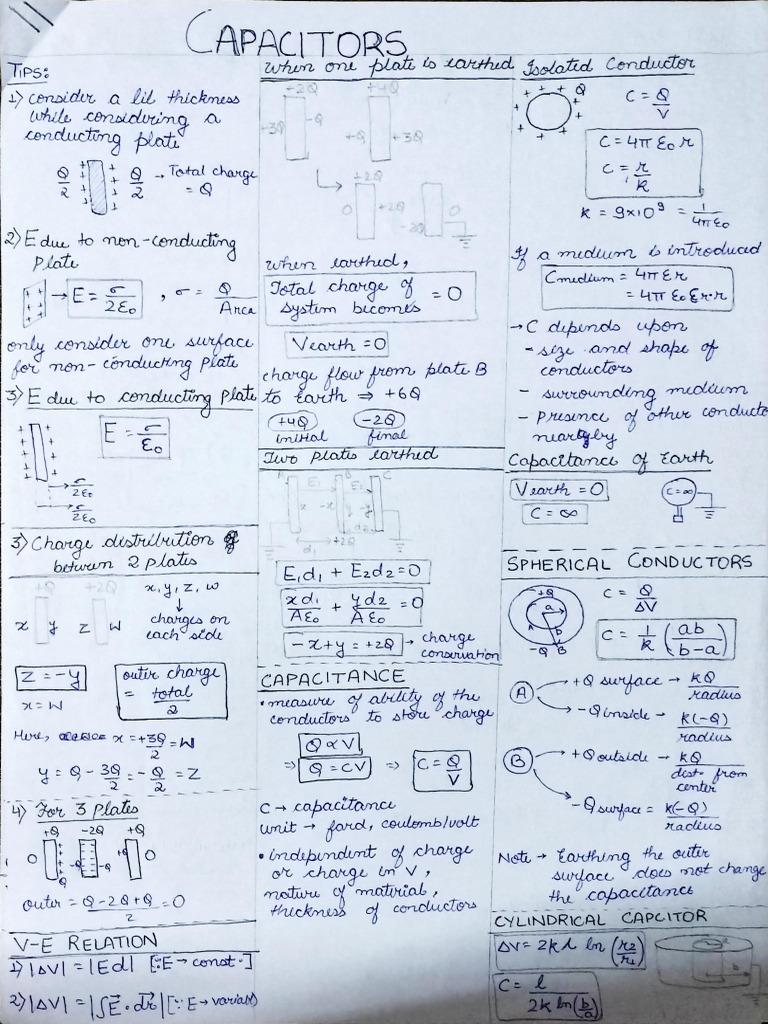 CAPACITORS
TIPS:
1) consider a lil thickness
while considering a
conducting plate
Q/2 Q/2 → Total charge
= Q
2) E due to non-conducting
plate
→ E = σ/2ε₀ , σ = Q/Area
only consider one surface
for non-conducting plate
3) E due to conducting plate
E = σ/ε₀
→ σ/2ε₀
→ σ/2ε₀
3) Charge distribution of
between 2 plates
+Q +2Q x, y, z, w
↓
x y z w charges on
each side
z = -y
x = w
outer charge
= total/2
Here, x = +3Q/2 = w
y = Q - 3Q/2 = -Q/2 = z
4) For 3 plates
+Q -2Q +Q
0 Q -Q -Q +Q 0
outer = Q - 2Q + Q/2 = 0
V-E RELATION
1) |ΔV| = |Ed| [∵ E → const.]
2) |ΔV| = |∫E⃗ · dr⃗| [∵ E → variable]
When one plate is earthed
+2Q +4Q
+3Q -Q +Q +3Q
+2Q
0 +2Q -2Q 0
when earthed,
Total charge of
system becomes = 0
Vearth = 0
charge flow from plate B
to Earth ⇒ +6Q
+4Q -2Q
initial final
Two plates earthed
A B C
E₁ E₂
x -x -y y
d₁ d₂
+2Q
E₁d₁ + E₂d₂ = 0
xd₁/Aε₀ + yd₂/Aε₀ = 0
-x+y = +2Q → charge
conservation
CAPACITANCE
• measure of ability of the
conductors to store charge
Q ∝ V
⇒ Q = CV ⇒ C = Q/V
C → capacitance
unit → fard, coulomb/volt
• independent of charge
or charge in V,
nature of material,
thickness of conductors
Isolated Conductor
Q
C = Q/V
C = 4πε₀r
C = r/k
k = 9×10⁹ = 1/4πε₀
If a medium is introduced
Cmedium = 4πεr
= 4πε₀εr·r
→ C depends upon
- size and shape of
conductors
- surrounding medium
- presence of other conducto
nearby
Capacitance of Earth
Vearth = 0
C = ∞
C=∞
SPHERICAL CONDUCTORS
+Q
a
A b
-Q B
C = Q/ΔV
C = 1/k (ab/b-a)
A → +Q surface → kQ/radius
→ -Q inside → k(-Q)/radius
B → +Q outside → kQ/dist. from
center
→ -Q surface = k(-Q)/radius
Note → Earthing the outer
surface does not change
the capacitance
CYLINDRICAL CAPCITOR
ΔV = 2kλ ln (r₂/r₁)
C = l/2k ln(b/a)
a
b